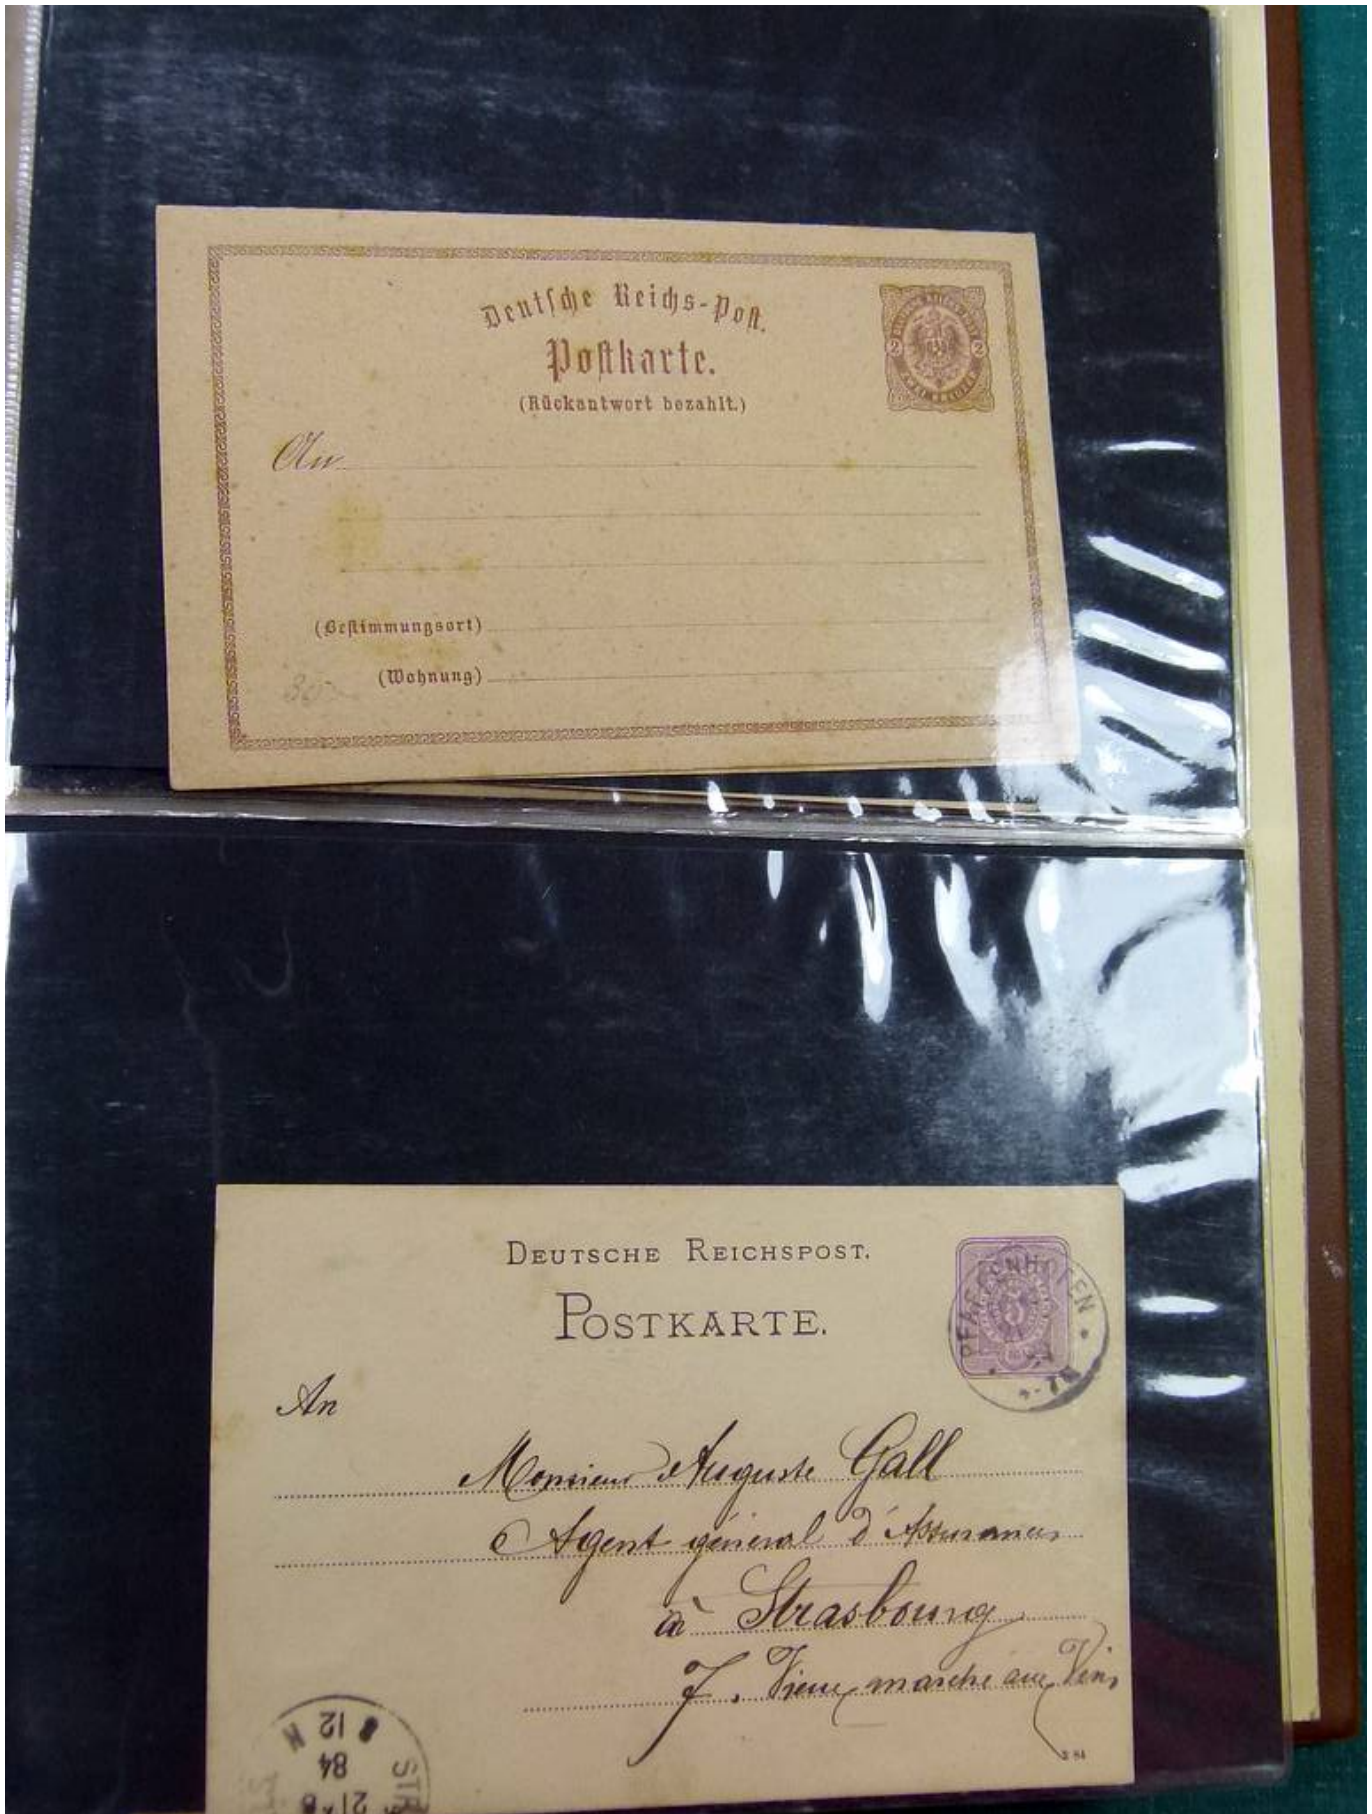 Deutsche Reichs-Post.
Postkarte.
(Rückantwort bezahlt.)
2 2
An
(Bestimmungsort)
(Wohnung)
DEUTSCHE REICHSPOST.
POSTKARTE.
PFAFFENHOFEN
5
An
Monsieur Auguste Gall
Agent général d'Assurances
à Strasbourg
7. Vieux marché aux Vins
3 84
STR
21 8
84
12 N